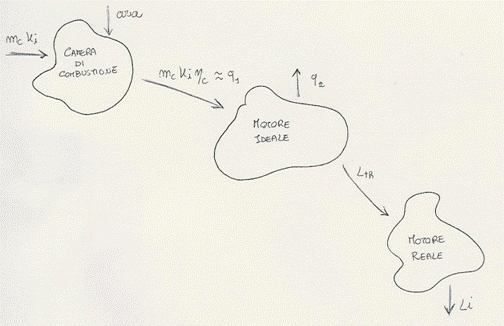 aria
mc Ki
CAMERA
DI
COMBUSTIONE
mc Ki ηc ≈ q1
q2
MOTORE
IDEALE
LTR
MOTORE
REALE
Li